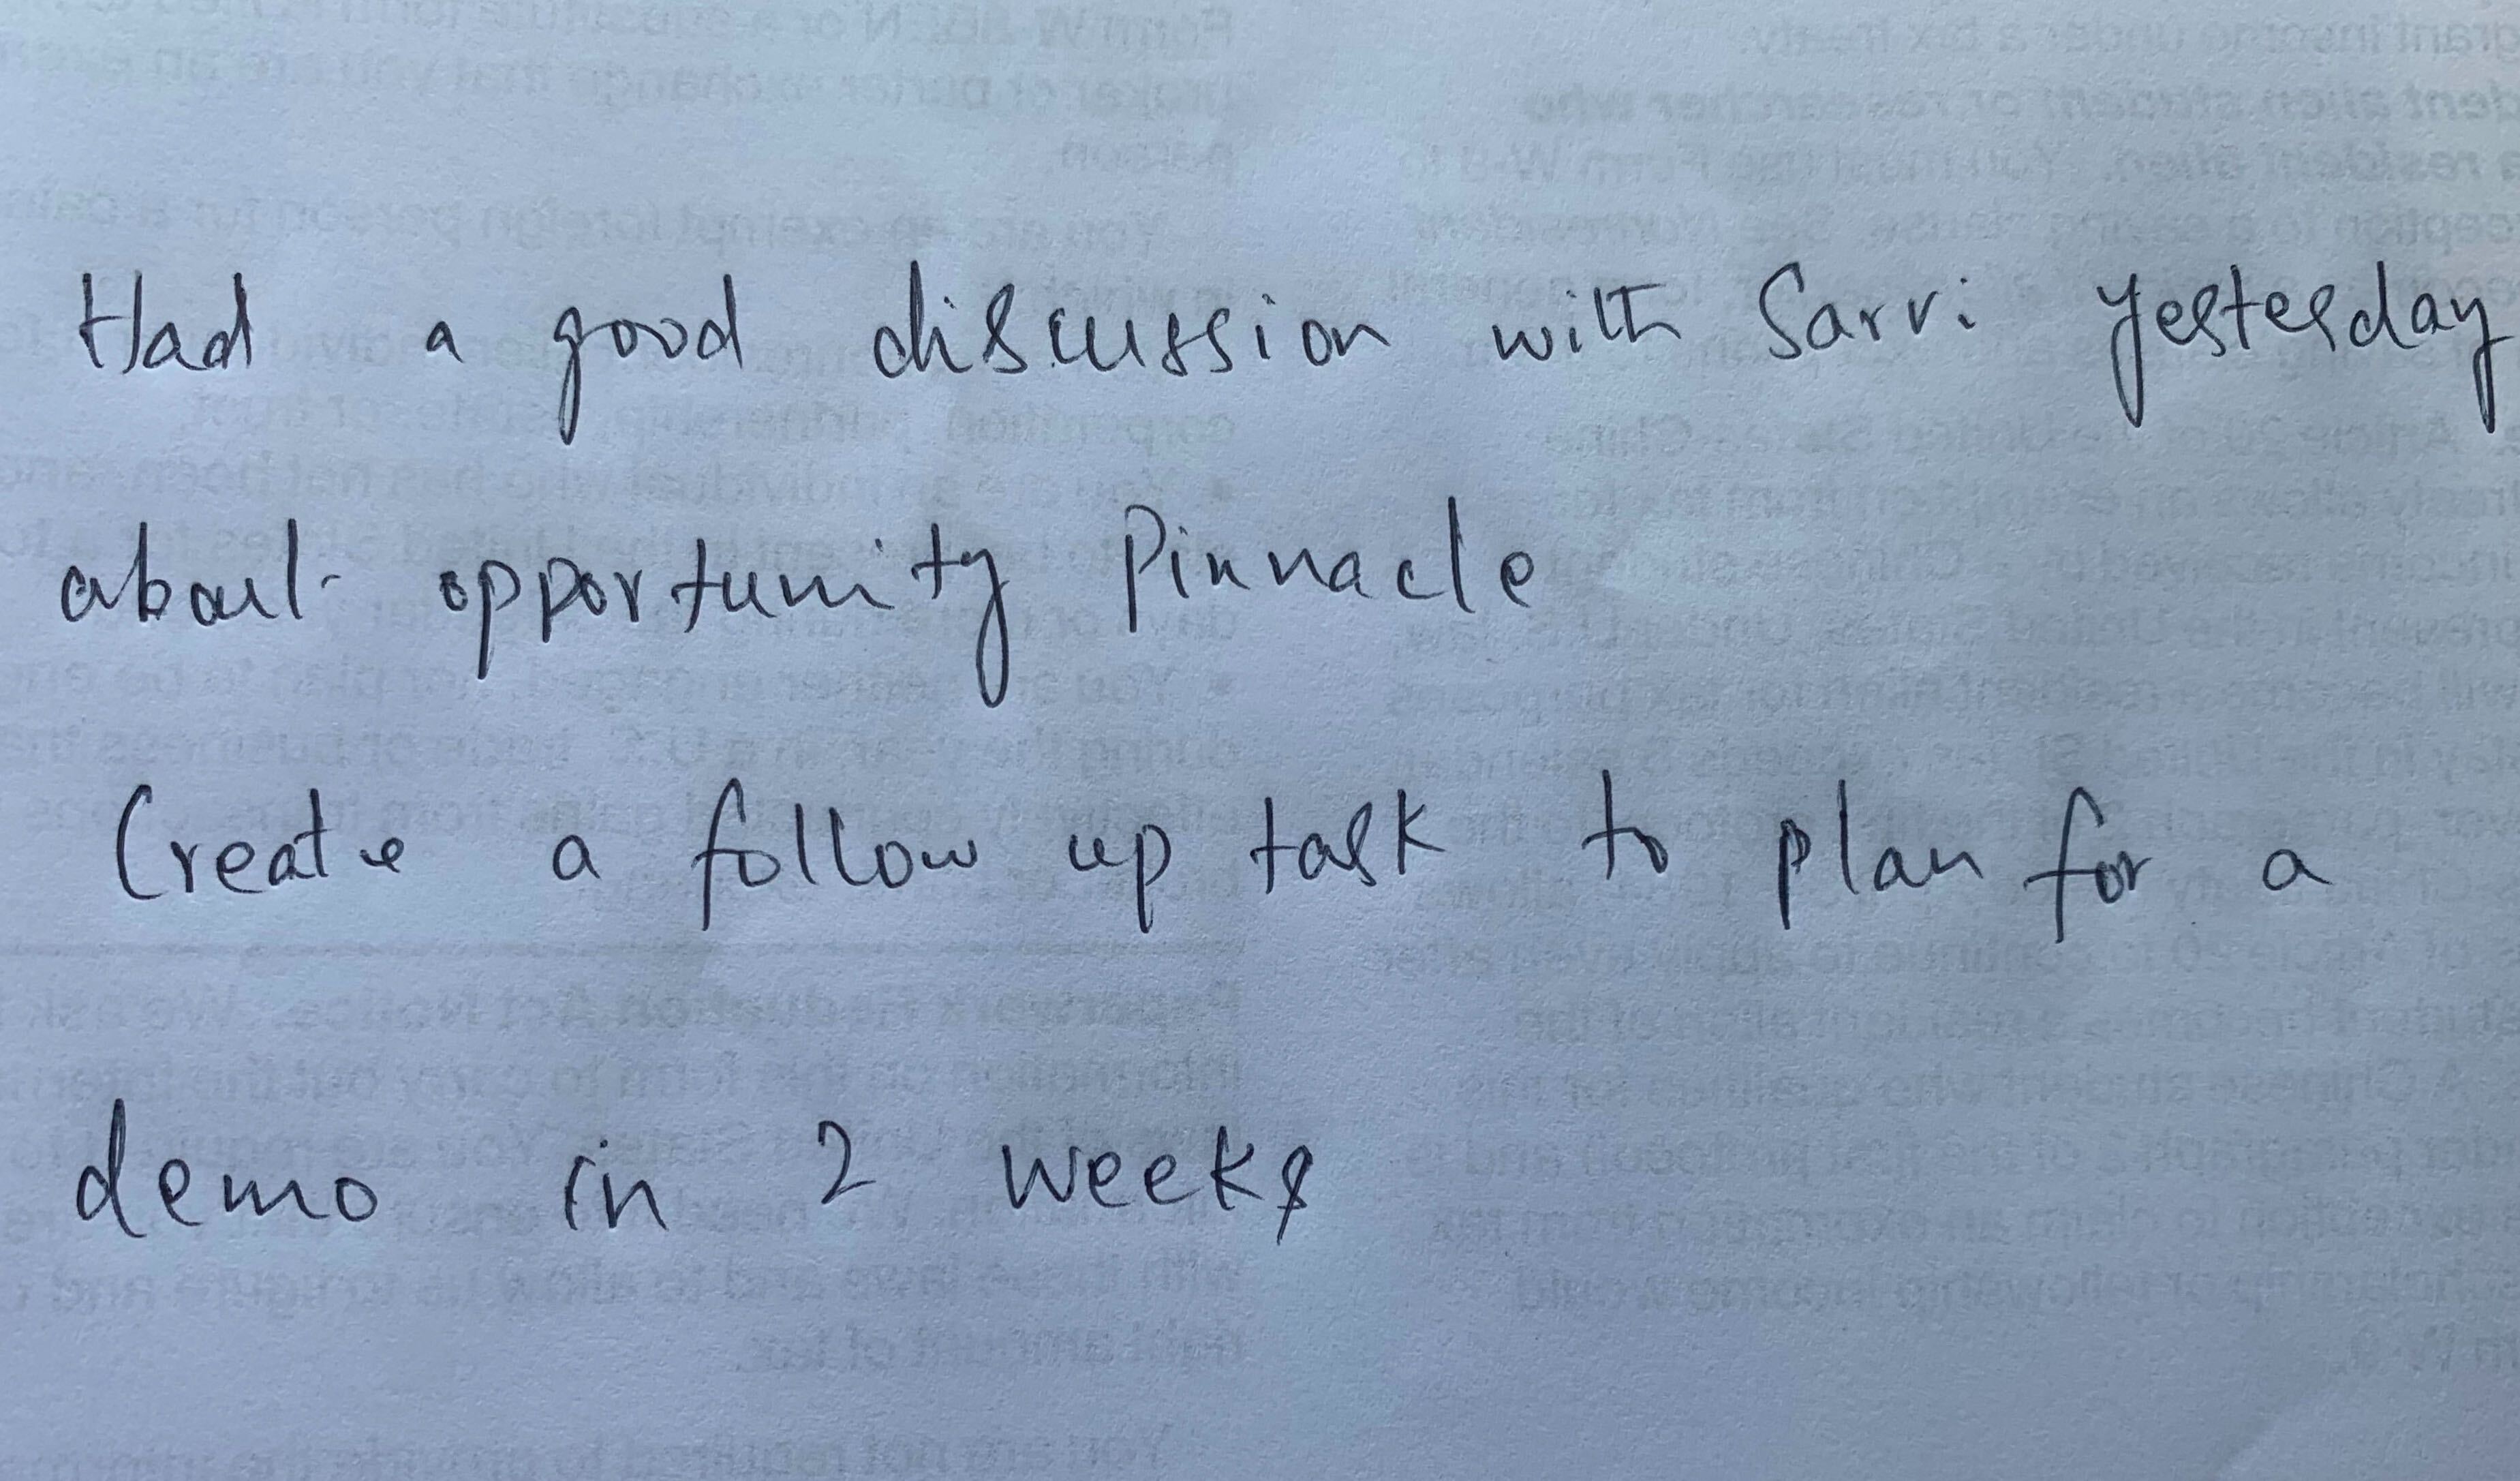 Had a good discussion with Sarvi yesterday
about opportunity Pinnacle
Create a follow up task to plan for a
demo in 2 weeks